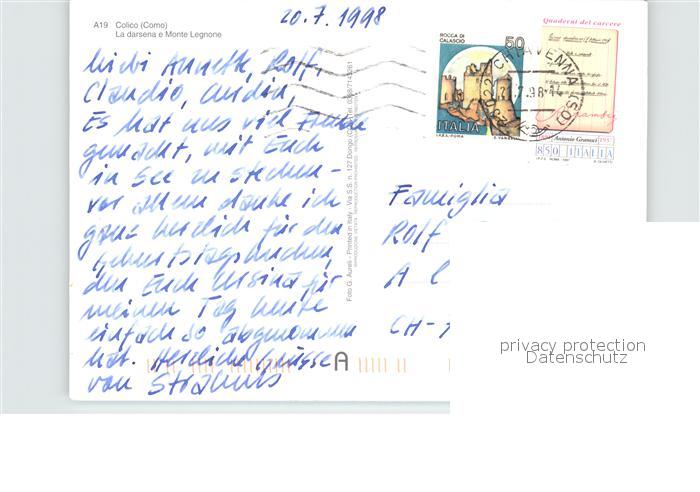 20.7.1998
A19 Colico (Como)
La darsena e Monte Legnone
Annette, Rolf,
Claudio,
Es hat uns viel Freude
gemacht, mit Euch
in See zu stechen -
vor allem danke ich
ganz herzlich für den
Geburtstagskuchen,
den Euch Ursina für
meinen Tag heute
einfach so abgenommen
hat. Herzliche Grüsse
von
Foto G. Aureli - Printed in Italy - Via S.S. n. 127 Dongo
ROCCA DI
CALASCIO
50
ITALIA
I.P.Z.S. ROMA
Quaderni del carcere
CHIAVENNA (SO)
Antonio Gramsci
850 ITALIA
Famiglia
Rolf
A
CH-
A
privacy protection
Datenschutz